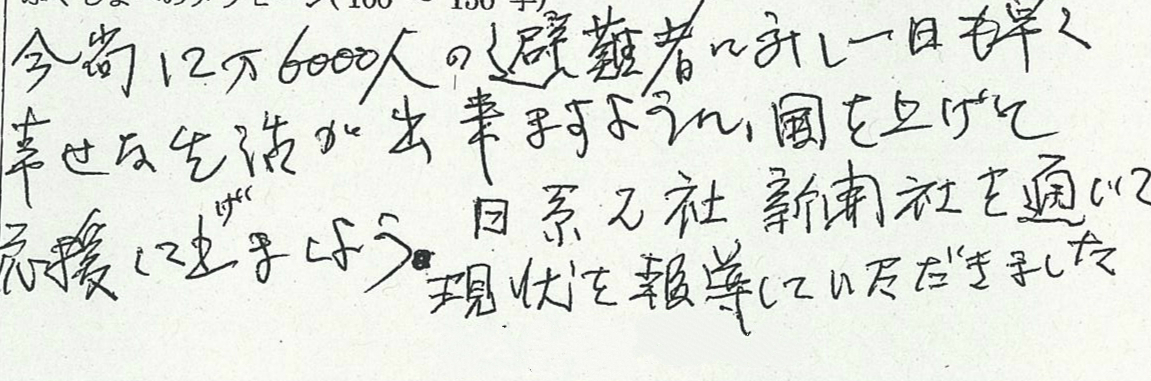 今尚12万6000人の避難者に対し一日も早く
幸せな生活が出来ますように、国を上げて
応援して上げましょう。日系2社新聞社を通じて
現状を報導していただきました